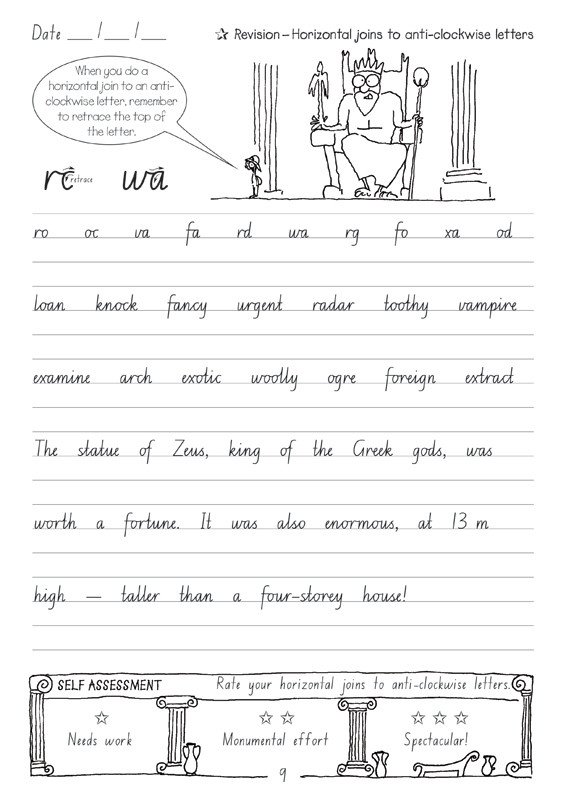 Date ___ / ___ / ___
☆ Revision – Horizontal joins to anti-clockwise letters
When you do a
horizontal join to an anti-
clockwise letter, remember
to retrace the top of
the letter.
rc retrace wa
ro oc va fa rd wa rg fo xa od
loan knock fancy urgent radar toothy vampire
examine arch exotic woolly ogre foreign extract
The statue of Zeus, king of the Greek gods, was
worth a fortune. It was also enormous, at 13 m
high – taller than a four-storey house!
SELF ASSESSMENT Rate your horizontal joins to anti-clockwise letters.
☆ ☆ ☆ ☆ ☆ ☆
Needs work Monumental effort Spectacular!
9